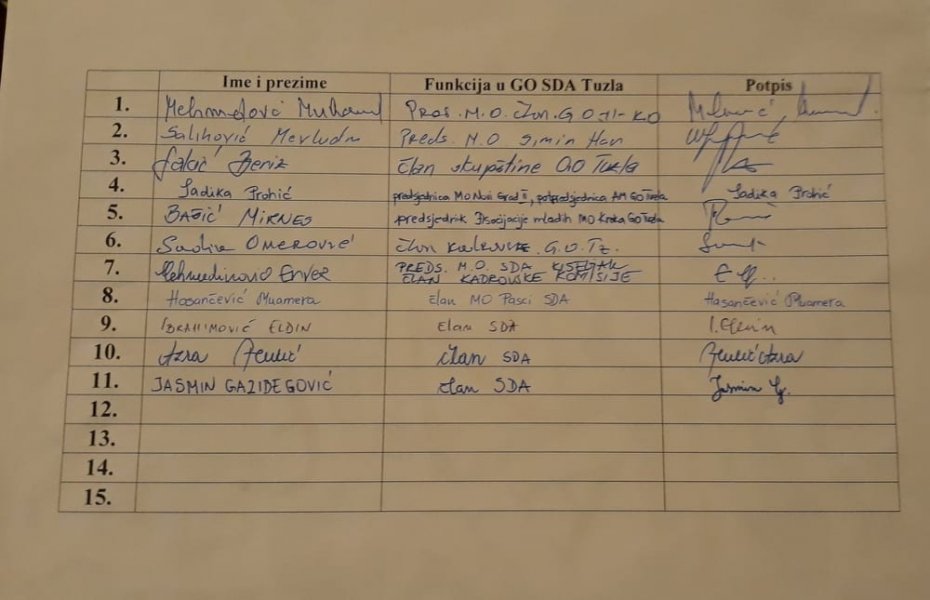 Ime i prezime Funkcija u GO SDA Tuzla Potpis
1. Mehmedović Muhamed
2. Salihović Mevludin Preds. M.O Simin Han
3. član skupštine GO Tuzla
4. Sadika Prohić predsjednica MO Novi Grad II, potpredsjednica AM GO Tuzla Sadika Prohić
5. BAŠIĆ MIRNES predsjednik Asocijacije mladih MO Kreka GO Tuzla
6. Sadija OMEROVIĆ član G.O. Tz.
7. PREDS. M.O. SDA KISELJAK
ČLAN KADROVSKE KOMISIJE
8. Hasančević Muamera član MO Pasci SDA Hasančević Muamera
9. IBRAHIMOVIĆ ELDIN član SDA
10. Azra član SDA Azra
11. JASMIN GAZIDEGOVIĆ član SDA Jasmin G.
12.
13.
14.
15.